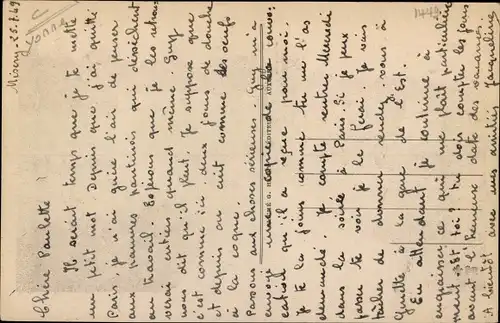 Misery. 25.7.49
Yonne
Chère Paulette,
Il serait temps que je te mette
un petit mot. Depuis que j'ai quitté
Paris je n'ai guère l'air de penser
aux pauvres pantinois qui dessèchent
au travail. Espérons que je les retrou-
verai entiers quand même. Guy
nous dit qu'il pleut. Je suppose que
c'est comme ici. deux jours de douche
et depuis on cuit comme des œufs
à la coque.
Passons aux choses sérieuses. Guy m'a
envoyé une copie de la convo-
cation qu'il a reçue pour moi.
Je te la joins comme tu me l'as
demandé. Je compte rentrer Mercredi
dans la soirée à Paris. Si je peux
passer te voir je le ferai. Je vais
tâcher de donner rendez-vous à
Guitte à la gare de l'Est.
En attendant je continue à
engraisser ce qui me plaît particulière-
ment. Et toi? tu dois compter les jours
avant l'heureuse date des vacances.
A bientôt avec mes amitiés Jacqueline